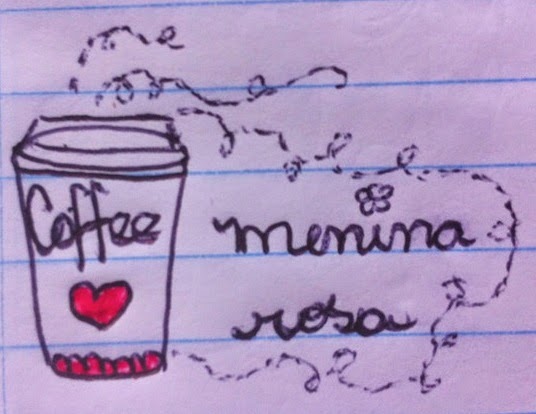 Coffee
menina
rosa